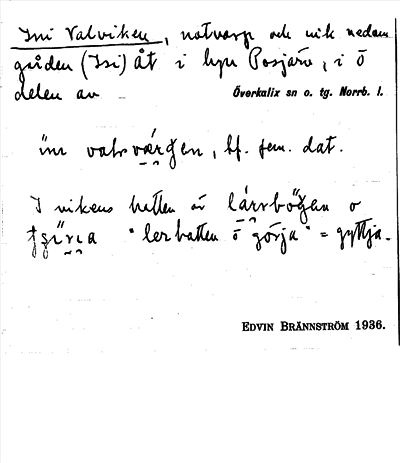 Ini Valviken, notvarp och vik nedan
gården (Isi) Åt i byn Posjärv, i ö
delen av Överkalix sn o. tg. Norrb. l.
in vals værgen, bf. fem. dat.
I vikens botten är lårrbögen o
"lerbotten o görja" = gyttja.
EDVIN BRÄNNSTRÖM 1936.